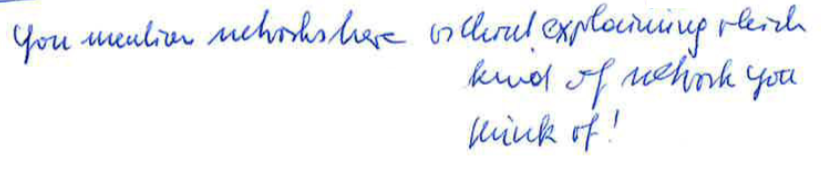 You mention networks here without explaining which
kind of network you
think of!